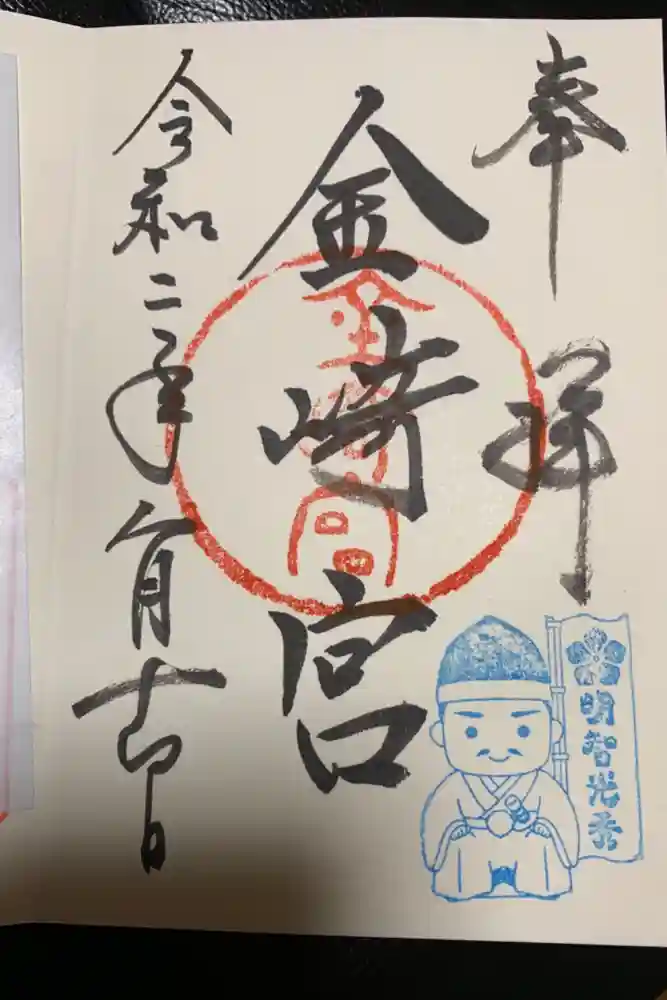 奉拝
金崎宮
金崎宮
令和二年八月十四日
明智光秀